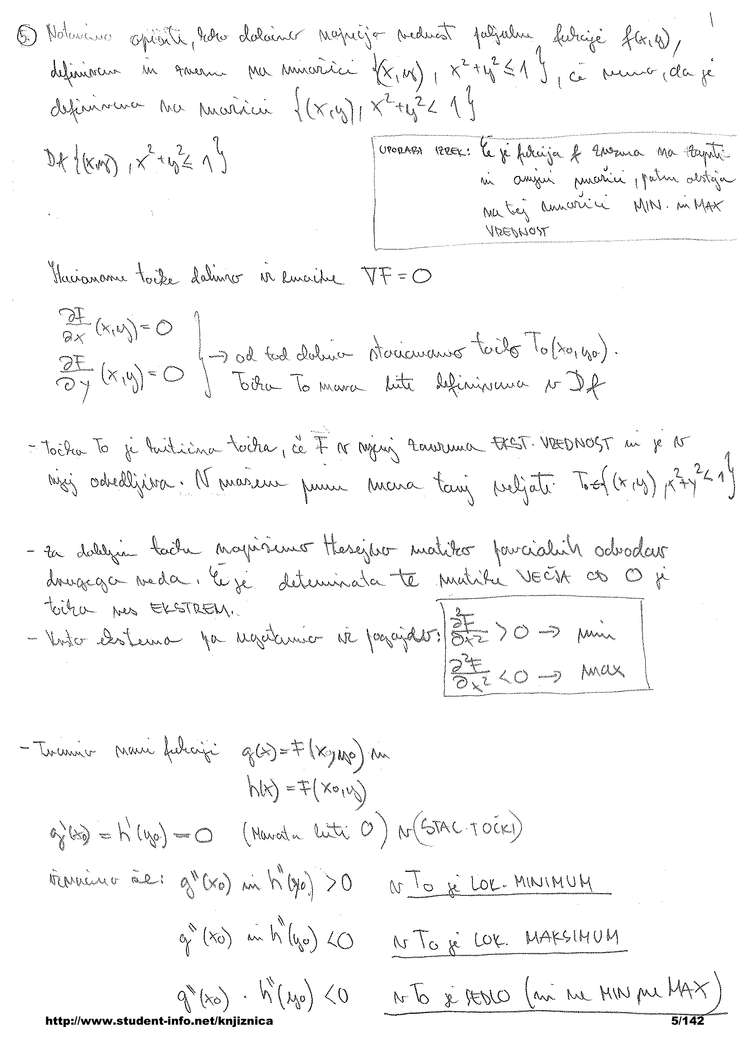 1
5. Natančno opišite, kako določimo največjo vrednost funkcije f(x,y),
definirane in zvezne na množici {(x,y), x²+y² ≤ 1}, če vemo, da je
definirana na množici {(x,y), x²+y² < 1}
Df {(x,y), x²+y² ≤ 1}
UPORABI IZREK: Če je funkcija f zvezna na zaprti
in omejeni množici, potem obstaja
na tej množici MIN. in MAX
VREDNOST
Stacionarne točke dobimo iz enačbe ∇F = 0
∂F/∂x (x,y) = 0
∂F/∂y (x,y) = 0
→ od tod dobimo stacionarno točko T₀(x₀,y₀).
Točka T₀ mora biti definirana v Df
- Točka T₀ je kritična točka, če F v njej zavzema EKST. VREDNOST in je v
njej odvedljiva. V našem primeru mora torej veljati T₀∈{(x,y), x²+y² < 1}
- Za točko napišemo Hesejevo matriko parcialnih odvodov
drugega reda. Če je determinanta te matrike VEČJA OD 0 je
točka res EKSTREM.
- Vrsto ekstrema pa ugotovimo iz pogojev:
∂²F/∂x² > 0 → min
∂²F/∂x² < 0 → max
- Tvorimo novi funkciji g(x) = F(x,y₀) in
h(x) = F(x₀,y)
g'(x₀) = h'(y₀) = 0 (Morata biti 0) v (STAC. TOČKI)
g''(x₀) in h''(y₀) > 0 v T₀ je LOK. MINIMUM
g''(x₀) in h''(y₀) < 0 v T₀ je LOK. MAKSIMUM
g''(x₀) · h''(y₀) < 0 v T₀ je SEDLO (ni ne MIN ne MAX)
http://www.student-info.net/knjiznica 5/142